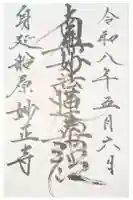 令和八年五月六日
南無妙法蓮華経
身延 原 妙正寺